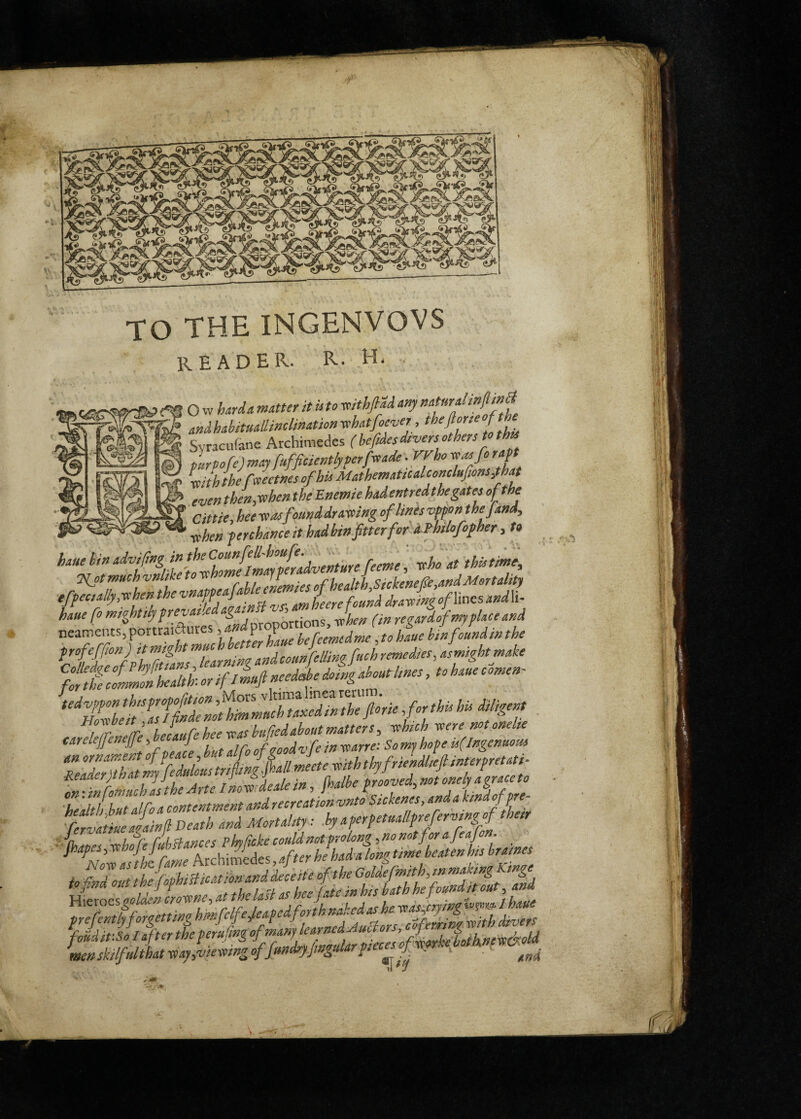 TO THE INGENVOVS
READER. R. H.
HOw hard a matter it is to withstãd any natural instinct
and habituall inclination whatsoever, the storie of the
Syracusane Archimedes (besides divers others to this
purpose) may sufficiently perswade. VVho was so rapt
with the sweetnes of his Mathematical conclusions, that
even then, when the Enemie had entred the gates of the
Cittie, hee was found drawing of lines vppon the sand,
when perchance it had bin fitter for a Philosopher, to
haue bin advising in the Counsell-house.
Not much vnlike to whome I may peradventure seeme, who at this time,
especially, when the vnappeasable enemies of health, Sickenesse, and Mortality
haue so mightily prevailed against vs, am heere found drawing of lines and li-
neaments, portraictures, and proportions, when (in regard of my place and
profession) it might much better haue beseemed me, to haue bin found in the
Colledge of Physitians, learning and counselling such remedies, as might make
for the common health: or if I must needs be doing about lines, to haue cõmen-
ted vppon this proposition, Mors vltima linea rerum.
Howbeit, as I finde not him much taxed in the storie, for this his diligent
carelessenesse, because hee was busied about matters, which were not onelie
an ornament of peace, but also of good vse in warre: So my hope is (Ingenuous
Reader) that my sedulous trifling shall meete with thy friendliest interpretati-
on: insomuch as the Arte I now deale in, shalbe prooved, not onely a grace to
health, but also a contentment and recreation vnto Sickenes, and a kind of pre-
servatiue against Death and Mortality: by a perpetuall preserving of their
shapes, whose substances Physicke could not prolong, no not for a season.
Now as the same Archimedes, after he had a long time beaten his braines
to find out the sophistication and deceite of the Goldesmith, in making Kinge
Hieroes golden crowne, at the last as hee sate in his bath he found it out, and
presently forgetting himselfe, leaped forth naked as he was, crying I haue
foũd it: So I after the perusing of many learned Auctors, cõferring with divers
men skilful that way, viewing of sundry singular pieces of worke both new & old
¶ iij and